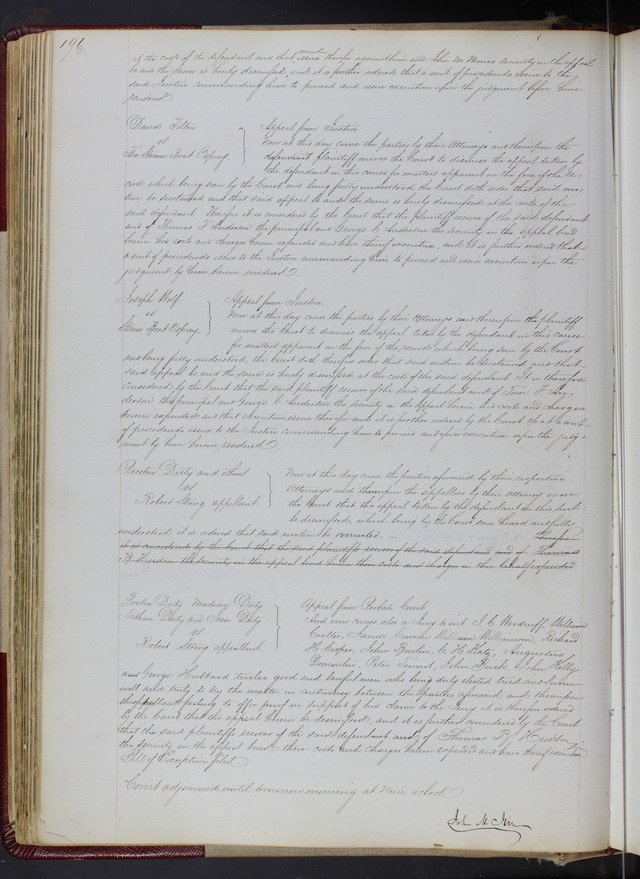 196
at the costs of the defendant and that execution issue therefor against him and John M Wimer security in the appeal
be and the same is hereby dismissed, and it is further ordered that a writ of procedendo issue to the
said Justice commanding him to proceed and issue execution upon the judgment before him
rendered
David Tilton
vs
The Steam Boat Osprey
Appeal from Justice
Now at this day come the parties by their Attorneys and thereupon the
defendant plaintiff moves the Court to dismiss the appeal taken by
the defendant in this cause for matters apparent on the face of the Re-
cord which being seen by the Court and being fully understood the Court doth order that said mo-
tion be sustained and that said appeal be and the same is hereby dismissed at the costs of the
said defendant. Therefore it is considered by the Court that the plaintiff recover of the said defendant
and of Thomas F Anderson the principal and George C Anderson the security in the appeal bond
herein his costs and charges herein expended and have thereof execution, and it is further ordered that
a writ of procedendo issue to the Justice commanding him to proceed and issue execution upon the
judgment by him herein rendered.
Joseph Wolf
vs
Steam Boat Osprey
Appeal from Justice.
Now at this day come the parties by their Attorneys and thereupon the plaintiff
moves the Court to dismiss the appeal taken by the defendant in this cause
for matters apparent on the face of the records which being seen by the Court
and being fully understood, the Court doth therefore order that said motion be sustained and that
said appeal be and the same is hereby dismissed at the costs of the said defendant It is therefore
considered by the Court that the said plaintiff recover of the said defendant and of F An-
derson the principal and George C Anderson the security in the appeal herein his costs and charges
herein expended and that execution issue therefor and it is further ordered by the Court that a writ
of procedendo issue to the Justice commanding him to proceed and issue execution upon the judg-
ment by him herein rendered
Preston Duty and others
vs
Robert Strong appellant.
Now at this day come the parties aforesaid by their respective
Attorneys and thereupon the appellees by their attorney move
the Court that the appeal taken by the defendant in this suit
be dismissed, which being by the Court seen heard and fully
understood it is ordered that said motion be overruled. — Therefore
it is considered by the Court that the said plaintiffs recover of the said defendant and of Thomas
the security in the appeal bond herein their costs and charges in this behalf expended
Preston Duty Madison Duty
Duty and Duty
vs
Robert Strong appellant.
Appeal from Probate Court.
And now comes also a Jury to wit J C Woodruff, William
Coulter, James William Williamson, Richard
H Cooper, John C H Katz, Augustus
Peter John John Kelly
and George Hubbard twelve good and lawful men who being duly elected tried and sworn
well and truly to try the matter in controversy between the parties aforesaid and thereupon
the appellant failing to offer proof in support of his claim to the Jury it is therefore ordered
by the Court that the appeal herein be dismissed, and it is further considered by the Court
that the said plaintiffs recover of the said defendant and of Thomas
the security in the appeal bond their costs and charges herein expended and have thereof execution
Bill of Exceptions filed.
Court adjourned until tomorrow morning at Nine oclock
John M